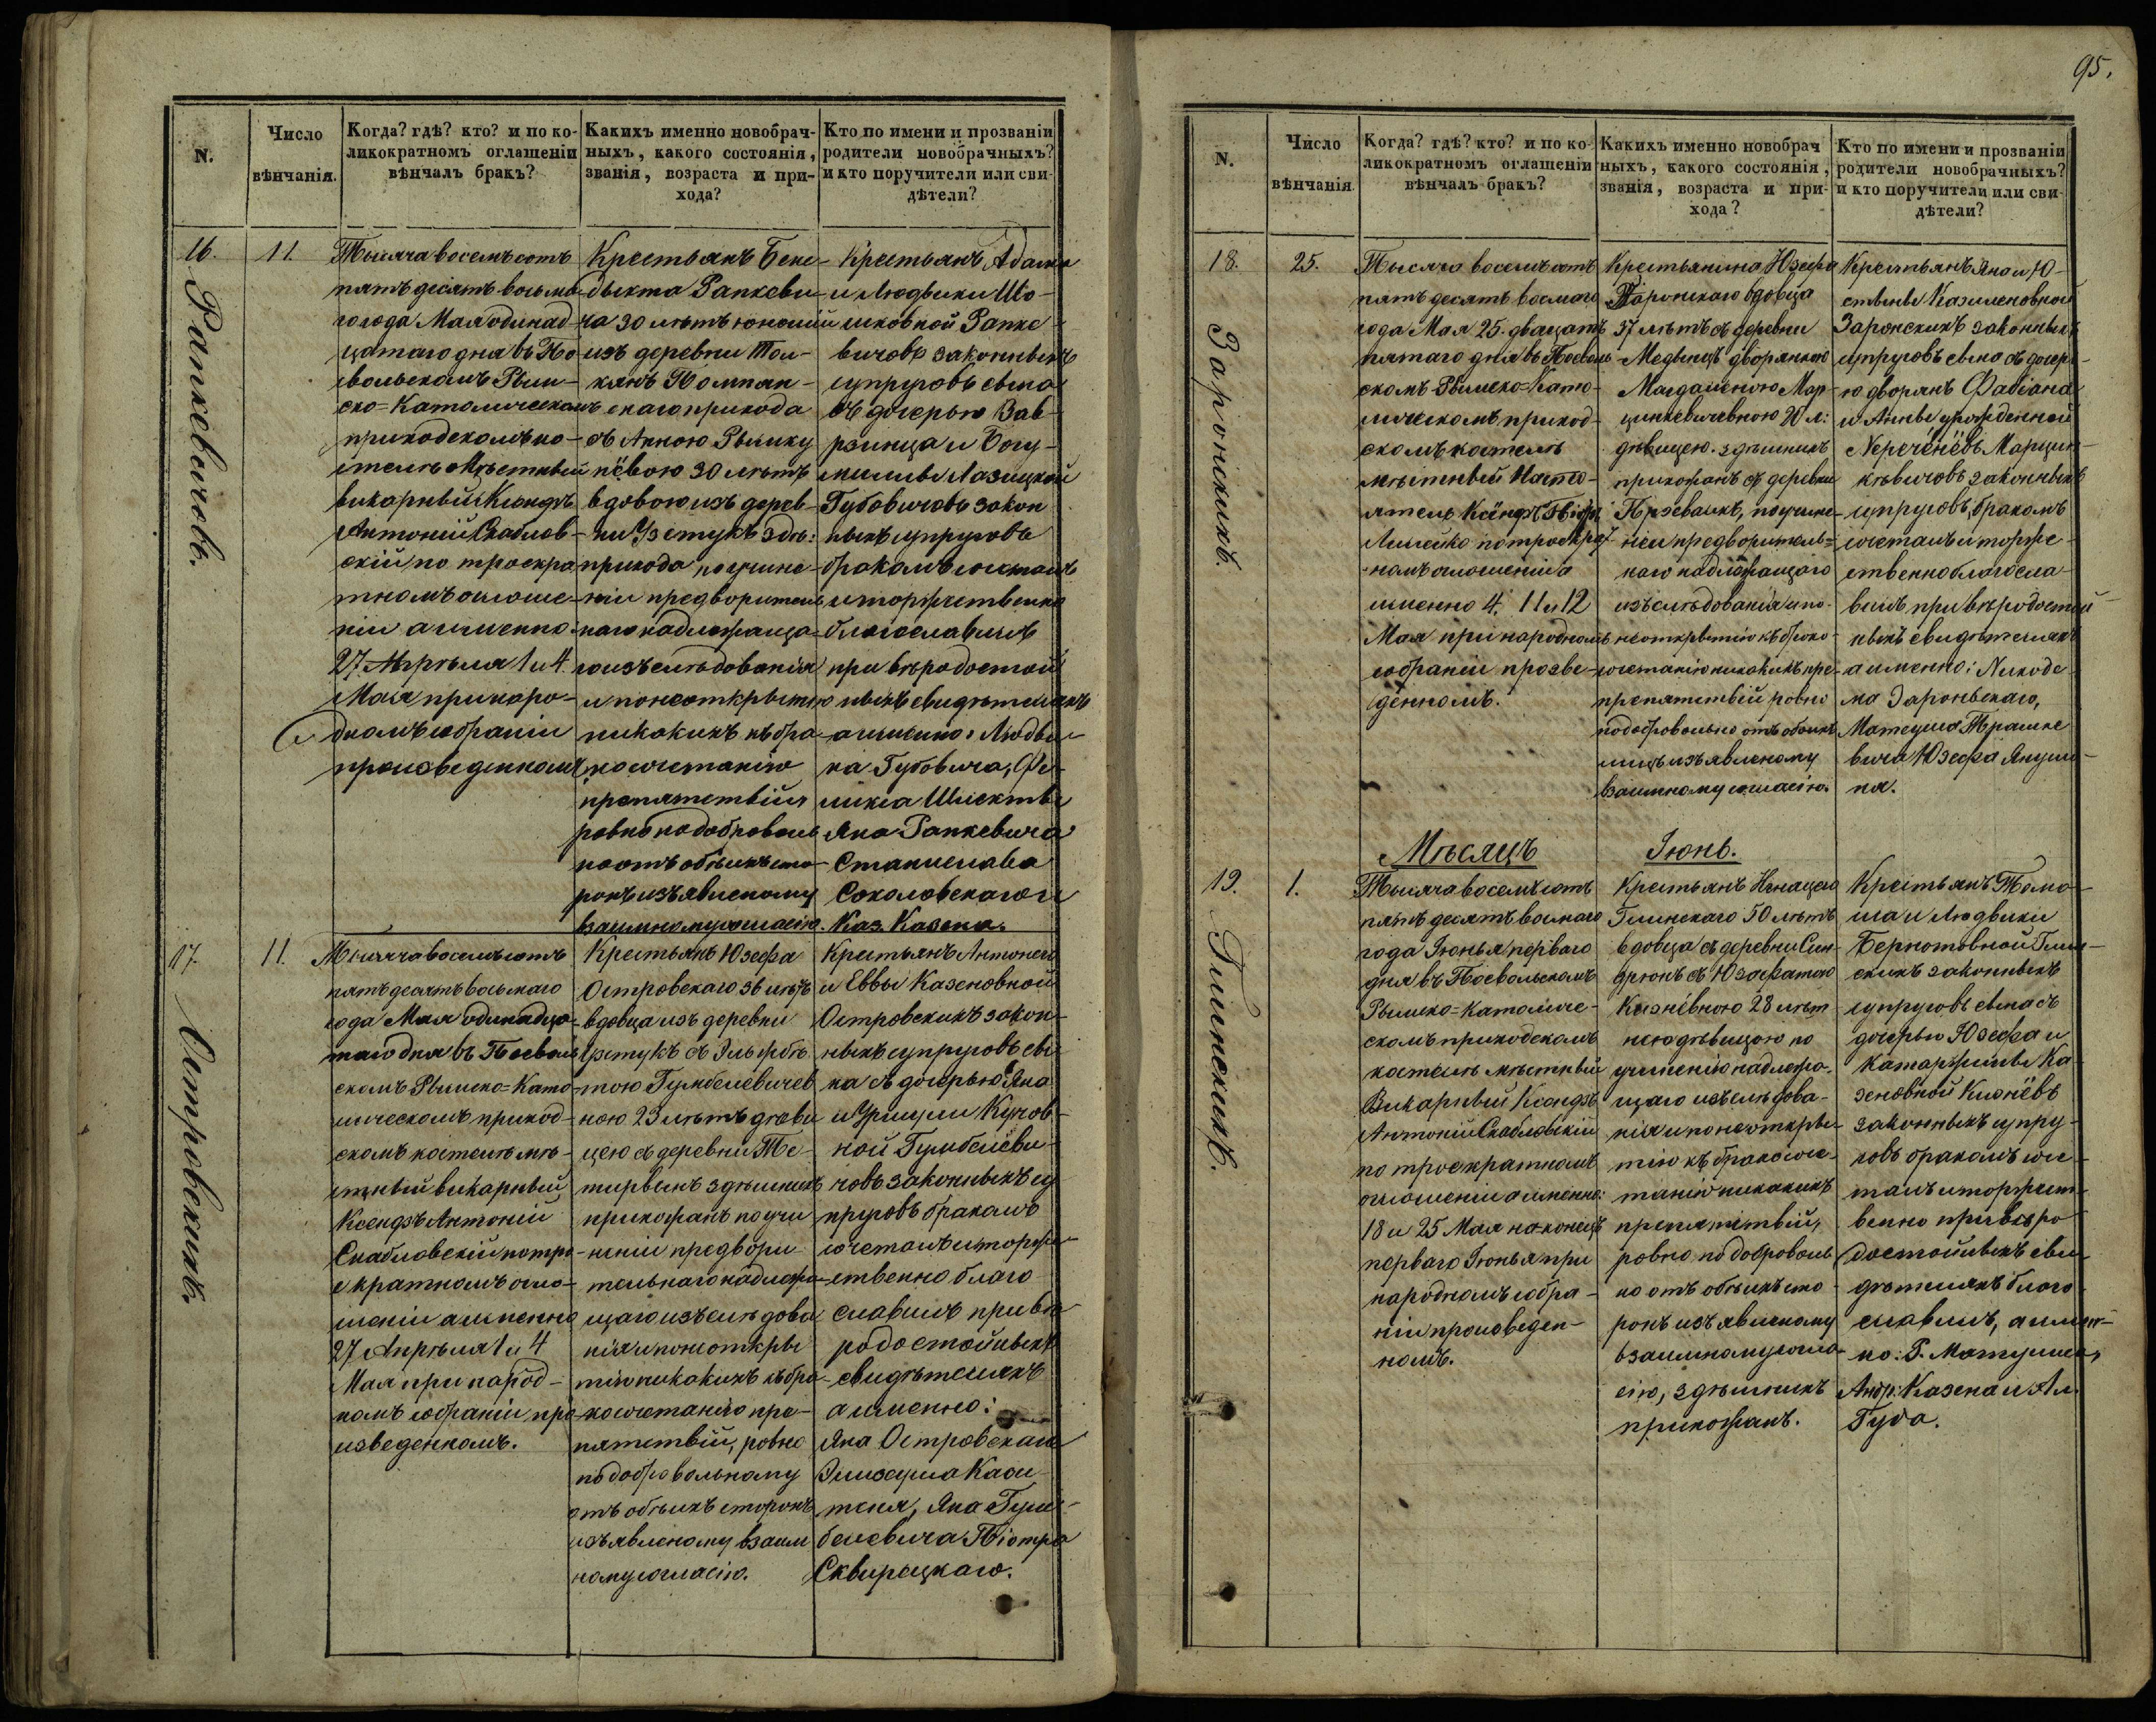 N.
Число
вѣнчанія.
Когда? гдѣ? кто? и по ко-
ликократномъ оглашеніи
вѣнчалъ бракъ?
Какихъ именно новобрач-
ныхъ, какого состоянія,
званія, возраста и при-
хода?
Кто по имени и прозваніи
родители новобрачныхъ?
и кто поручители или сви-
дѣтели?
16.
Рапкевичовъ.
11.
Тысяча восемьсотъ
пятьдесятъ восьма-
го года Мая одинад-
цатаго дня въ По
евольскомъ Рим-
ско=Католическомъ
приходскомъ ко-
стелѣ Мѣстный
викарный Ксендзъ
Антоній Скаблов-
скій по троекра
тномъ оглаше-
ніи а именно:
27. Апрѣля 1 и 4
Мая при наро-
дномъ собраніи
произведенномъ
Крестьянъ Бене-
дыкта Рапкеви-
ча 30 лѣтъ юношу
изъ деревни
скаго прихода
съ Анною
30 лѣтъ
вдовою изъ дерев-
ни Узстукъ здѣ:
прихода по учине-
ніи предворитель
наго надлежаща-
го изъслѣдованія
и понеоткрытію
никакихъ къ бра
косочетанію
препятствій,
ровно подобровол
но отъ обѣихъ сто-
ронъ изъявленому
взаимному согласію.
Крестьянъ Адама
и Людвики Шо-
лковной Рапке
вичовъ законныхъ
супруговъ сына
съ дочерью Вав-
рзинца и Богу-
милы Лазицкой
Губовичовъ закон
ныхъ супруговъ
бракомъ сочеталъ
и торжественно
благославилъ
при вѣродостой
ныхъ свидѣтеляхъ
а именно: Людви
ка Губовича, Фе-
ликса
Яна Рапкевича
Станислава
Соколовскаго и
Каз. Казена.
17.
Островскихъ.
11.
Тысяча восемьсотъ
пятьдесятъ восьмаго
года Мая одинадца-
таго дня въ Поеволь
скомъ Римско=Като-
лическомъ приход-
скомъ костелѣ мѣ-
стный викарный
Ксендзъ Антоній
Скабловскій по тро-
екратномъ огла-
шеніи а именно
27 Апрѣля 1 и 4
Мая при народ-
номъ собраніи про-
изведенномъ.
Крестьянъ Юзефа
Островскаго 36 лѣтъ
вдовца изъ деревни
Узстукъ съ Эльжбѣ
тою Гумбелевичев
ною 23 лѣтъ дѣви
цею съ деревни Те-
тервынъ здѣшнихъ
прихожанъ по учи
неніи предвори
тельнаго надлежа-
щаго изъслѣдова
нія и понеоткры
тію никакихъ къ бра
косочетанію пре-
пятствій, ровно
подобровольному
отъ обѣихъ сторонъ
изъявленому взаим
ному согласію.
Крестьянъ Антонего
и Еввы Казеновной
Островскихъ закон-
ныхъ супруговъ сы
на съ дочерью Яна
и Уршули Кучов-
ной Гумбелеви-
човъ законныхъ су
пруговъ бракомъ
сочеталъ и торже
ственно благо
славилъ при вѣ-
родостойныхъ
свидѣтеляхъ
а именно:
Яна Островскаго
Элизеуша Каси-
теня, Яна Гум-
белевича Піотра
Сквирецкаго.
95.
N.
Число
вѣнчанія
Когда? гдѣ? кто? и по ко-
ликократномъ оглашеніи
вѣнчалъ бракъ?
Какихъ именно новобрач
ныхъ, какого состоянія,
званія, возраста и при-
хода?
Кто по имени и прозваніи
родители новобрачныхъ?
и кто поручители или сви-
дѣтели?
18.
Заронскихъ.
25.
Тысяча восемьсотъ
пятьдесятъ восмаго
года Мая 25. двацать
пятаго дня въ Поеволь
скомъ Рымско=Като-
лическомъ приход-
скомъ костелѣ
мѣстный Насто-
ятель Ксёндзъ
по троекрат
номъ оглошеніи а
именно 4. 11 и 12
Мая при народномъ
собраніи прозве-
денномъ.
Крестьянина Юзефа
Заронскаго вдовца
37 лѣтъ съ деревни
Медынцъ дворянкою
Магдаленою Мар-
цинкевичевною 20 л:
дѣвицею. здѣшнихъ
прихожанъ съ деревни
поучине-
ніи предворитель=
наго надлежащаго
изъслѣдованія и по
неоткрытію къ брако-
сочетанію никакихъ пре-
препятствій ровно
подобровольно отъ обоихъ
лицъ изъявленому
взаимному согласію.
Крестьянъ Яна и Ю-
стыны Казимеровной
Заронскихъ законныхъ
супруговъ сына съ дочерь-
ю дворянъ Фабіана
и Анны урожденной
Марцин-
кѣвичовъ законныхъ
супруговъ, бракомъ
сочеталъ и торже-
ственно благосла-
вилъ, при вѣродостой-
ныхъ свидѣтеляхъ
а именно: Никоде-
ма Зароньскаго,
Матеуша
вича Юзефа
ня.
Мѣсяцъ Іюнь.
19.
Глинскихъ.
1.
Тысяча восемьсотъ
пятьдесятъ восмаго
года Іюнья перваго
дня въ Поевольскомъ
Рымско=Католиче-
скомъ приходскомъ
костелѣ мѣстный
Викарный Ксендзъ
Антоній Скабловскій
по троекратномъ
оглошеніи а именно:
18 и 25 Мая наконецъ
перваго Іюнья при
народномъ собра-
ніи произведен-
номъ.
Крестьянъ Игнацего
Глинскаго 50 лѣтъ
вдовца съ деревни Син-
дрюнъ съ Юзефатою
28 лѣт
нею дѣвицою по
учиненію надлежа-
щаго изъслѣдова-
нія и понеоткры-
тію къ бракосоче-
танію никакихъ
препятствій,
ровно подоброволь
но отъ обѣихъ сто-
ронъ изъявленому
взаимному согла-
сію, здѣшнихъ
прихожанъ.
Крестьянъ Тома-
ша и Людвики
Бернотовной Глин-
скихъ законныхъ
супруговъ сына съ
дочерью Юзефа и
Катаржины Ка-
зеновной
законныхъ супру-
говъ бракомъ соче-
талъ и торжест-
венно при вѣро-
достойныхъ сви-
дѣтеляхъ благо
славилъ, а имен-
но: Г. Матушка,
Андр: Казена и Ал.
Гуда.